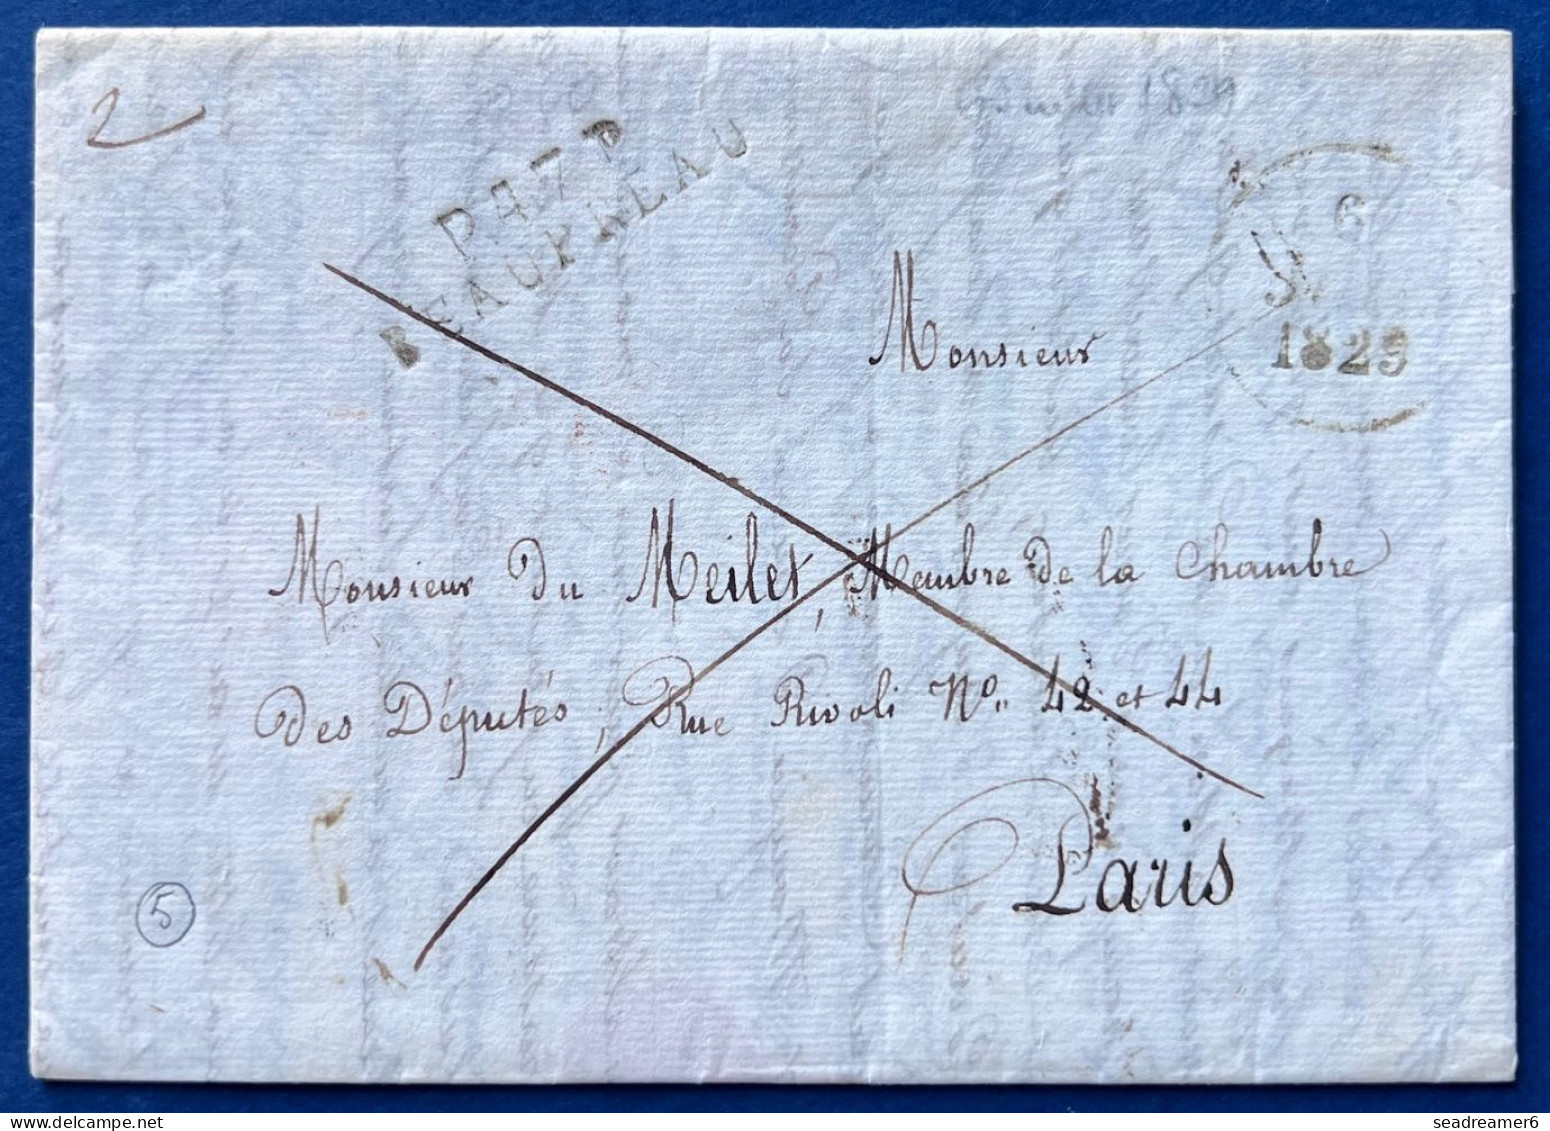 2
1829
P.47.P.
BEAUPREAU
6
1829
Monsieur
Monsieur Du Meilet, Membre de la Chambre
Des Députés, Rue Rivoli N° 42 et 44
Paris
5
seadreamer6